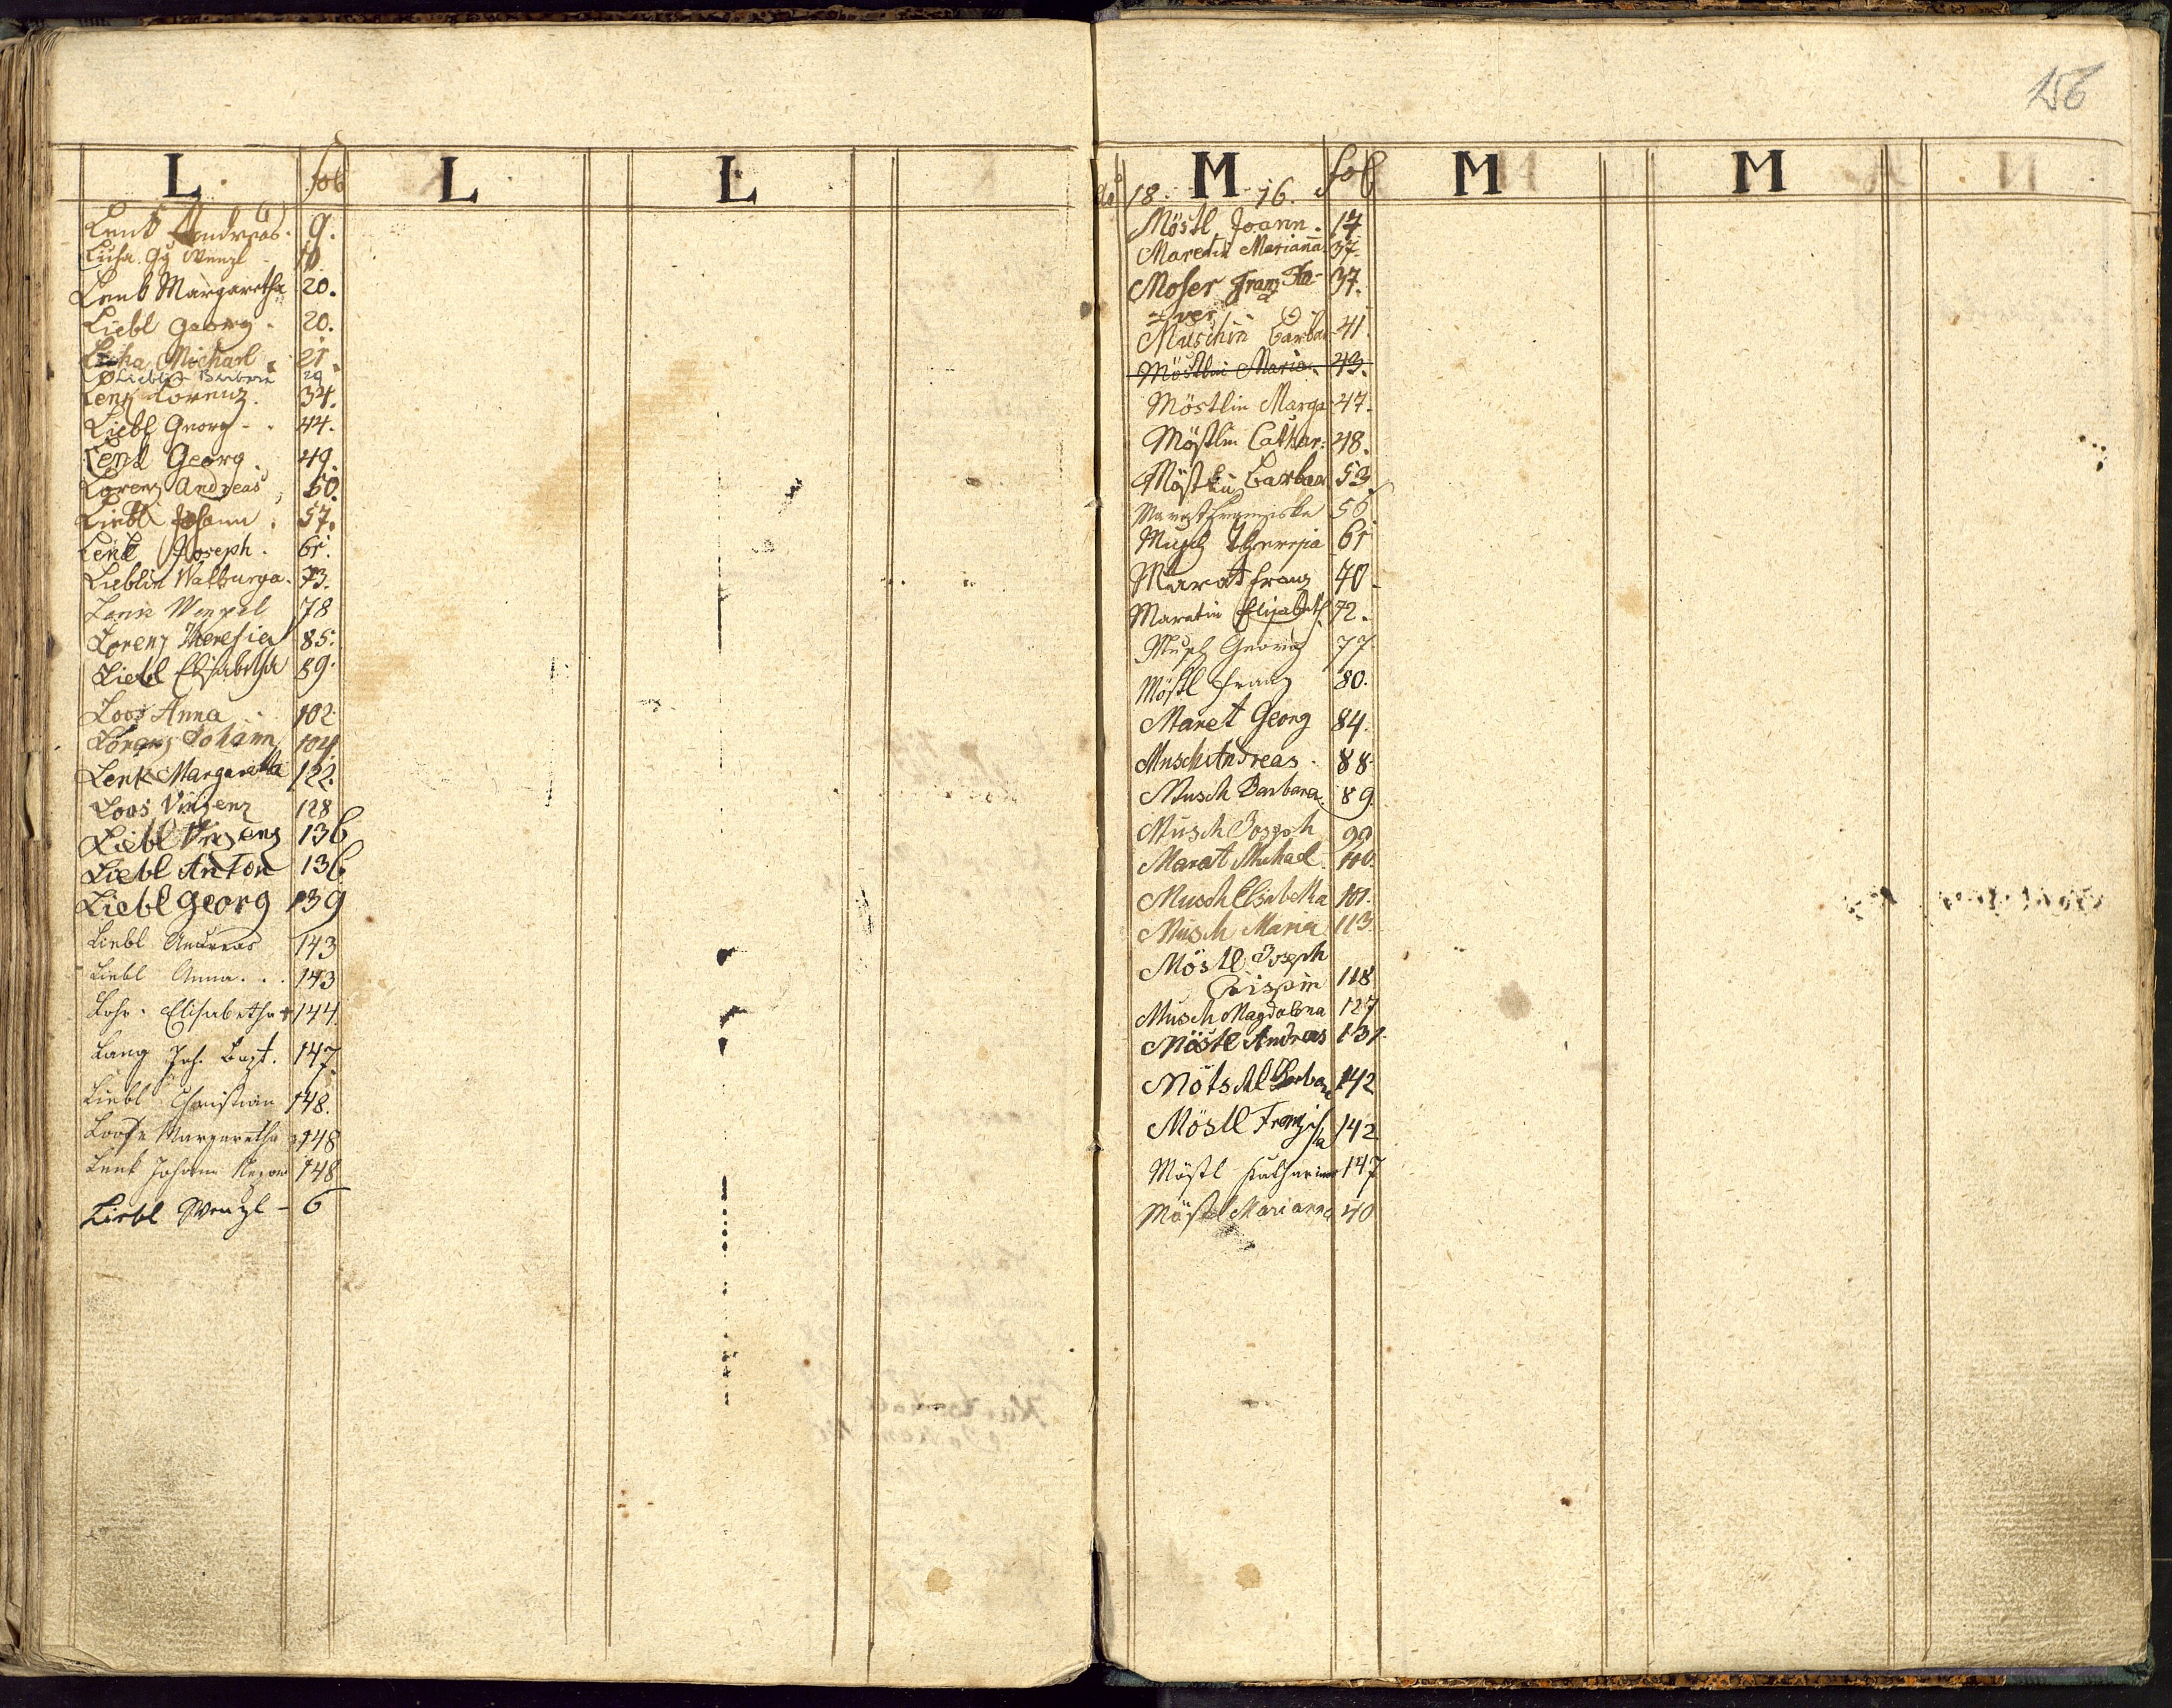 L. fol L L
Lenk Andreas. 9.
Wenzl 10
Lenk Margaretha 20.
Liebl Georg. 20.
Michael 21.
Lieblin Barbara 29
Lenk Lorenz. 34.
Liebl Georg - . 44.
Lenk Georg. 49.
Lorenz Andreas 50.
Liebl Johann . 57.
Lenk Joseph. 61.
Lieblin Walburga. 73.
Lenk Wenzel 78
Lorenz Theresia 85.
Liebl Elisabetha 89.
Loos Anna 102.
Lorenz Johann 104
Lenk Margaretha 122.
Loos Vinzenz 128
Liebl Vinzenz 136
Liebl Anton 136
Liebl Georg 139
Liebl Andreas 143
Liebl Anna. . . 143
Lohr. Elisabetha 144
Lang Joh. Bapt. 147
Liebl Christian 148.
Margaretha 148
Lenk Johann Nepom 148
Liebl Wenzl - 6
156
M fol M M
18. 16.
Möstl Joann. 17
Maretin Marianna 37.
Moser Franz Xa- 37.
ver
Muschin Barbar 41
Möstlin Maria. 43.
Möstlin Marga 47.
Möstlin Cathar. 48.
Möstlin Barbar 53
Marat Franziska 56
Musch Theresia 61
Marat Franz 70
Maratin Elisabeth 72.
Musch Georg 77
Möstl Franz 80.
Maret Georg 84.
Musch Andreas. 88
Musch Barbara. 89
Musch Joseph 99
Marat Michael 100.
Musch Elisabetha 101.
Musch Maria 113.
Möstl Joseph
Crispin 118
Musch Magdalena 127
Möstl Andreas 131.
Mötschl Barbara 142
Möstl Franziska 142
Möstl Katharina 147
Möstl Marianna 40